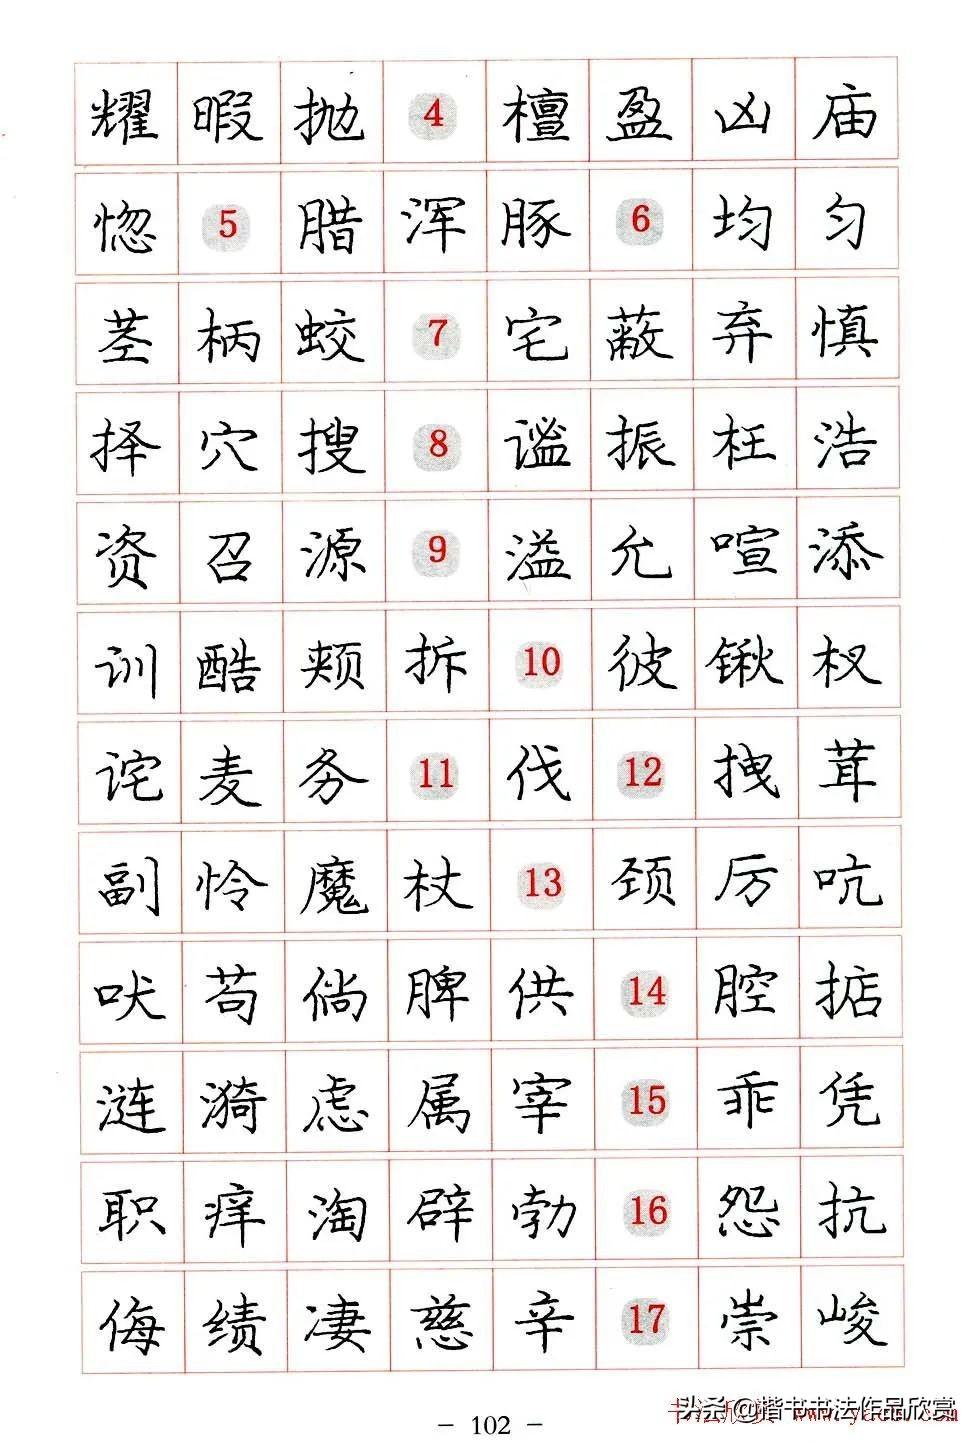 耀 暇 抛 4 檀 盈 凶 庙
惚 5 腊 浑 豚 6 均 匀
茎 柄 蛟 7 宅 蔽 弃 慎
择 穴 搜 8 谧 振 枉 浩
资 召 源 9 溢 允 喧 添
训 酷 颊 拆 10 彼 锹 杈
诧 麦 务 11 伐 12 拽 茸
副 怜 魔 杖 13 颈 厉 吭
吠 苟 倘 脾 供 14 腔 掂
涟 漪 虑 属 宰 15 乖 凭
职 痒 淘 辟 勃 16 怨 抗
侮 绩 凄 慈 辛 17 崇 峻
- 102 -
头条@楷书书法作品欣赏